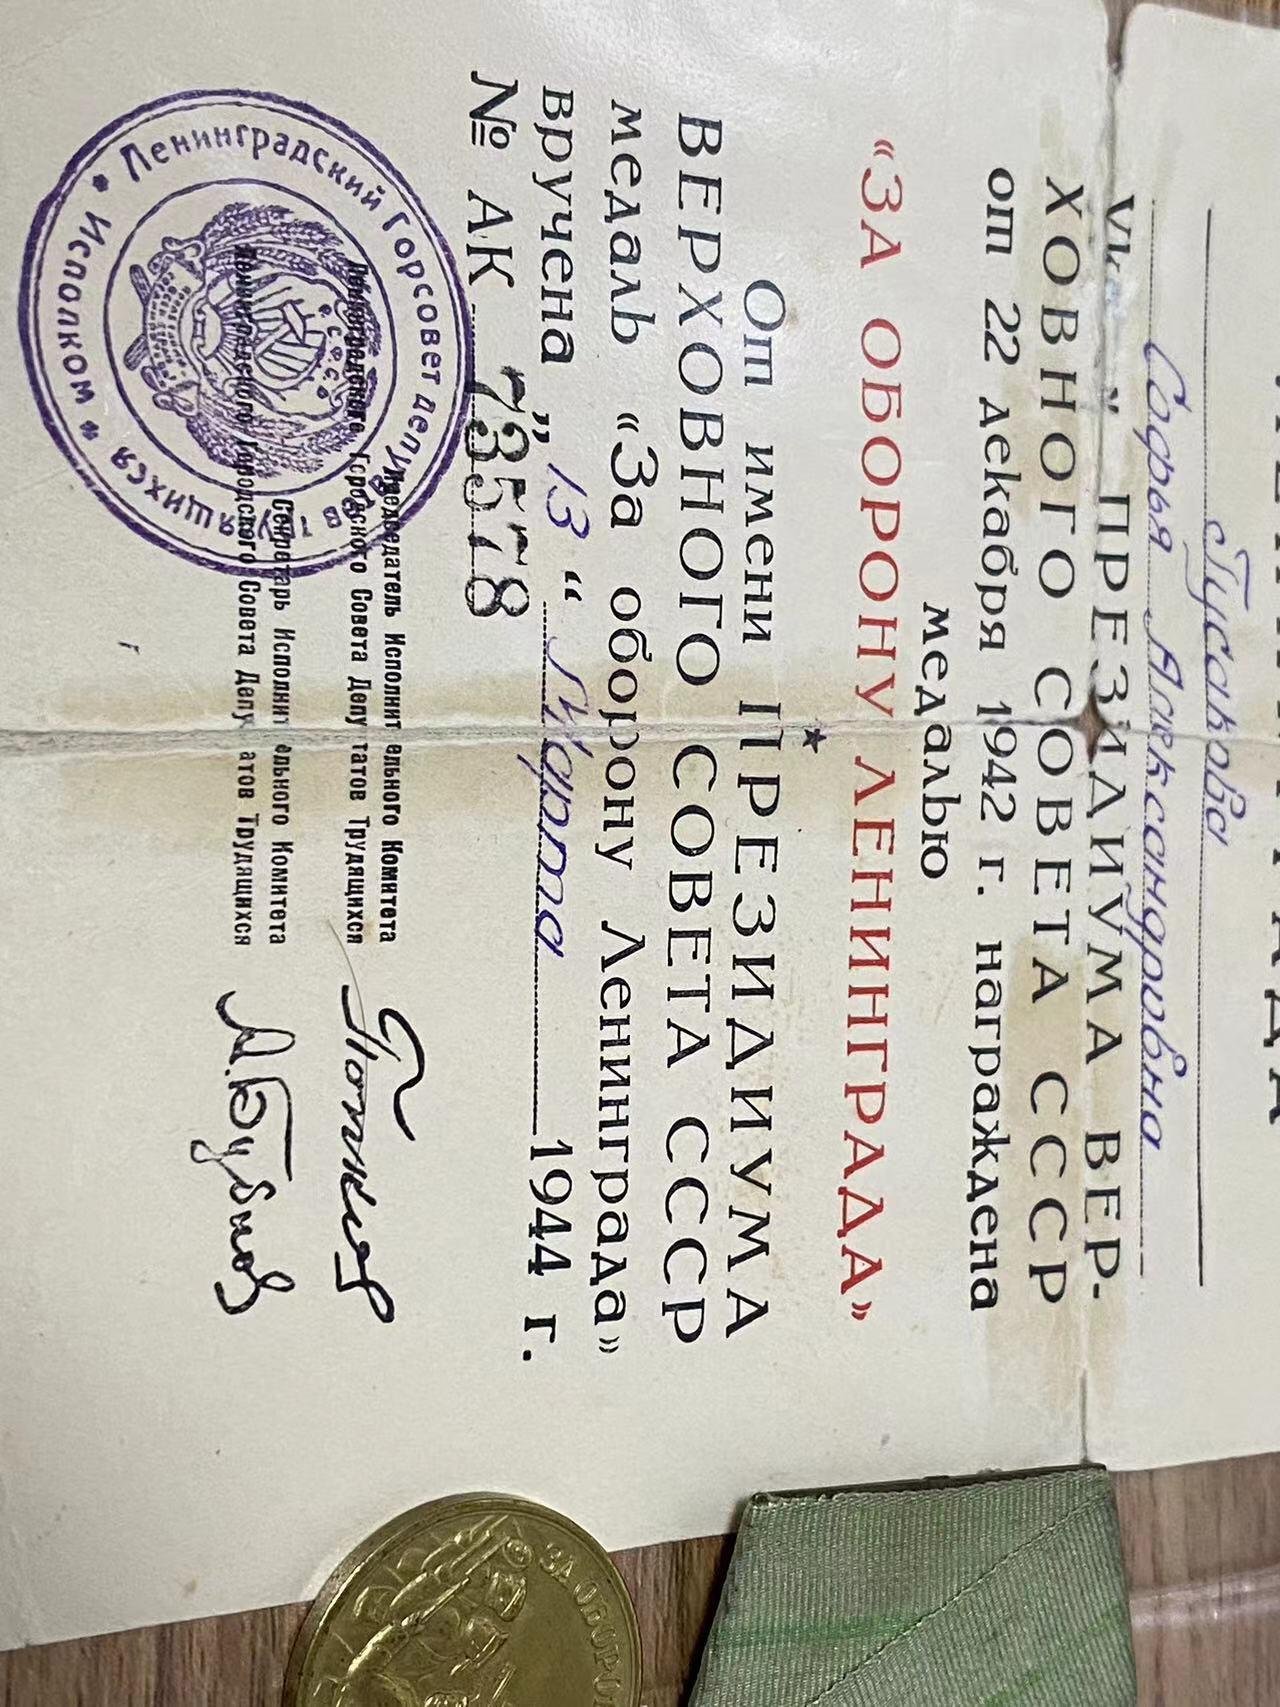 Гусакова
Софья Александровна
ПРЕЗИДИУМА ВЕР-
ХОВНОГО СОВЕТА СССР
от 22 декабря 1942 г. награждена
медалью
«ЗА ОБОРОНУ ЛЕНИНГРАДА»
От имени ПРЕЗИДИУМА
ВЕРХОВНОГО СОВЕТА СССР
медаль «За оборону Ленинграда»
вручена „13“ Марта 1944 г.
№ АК 73578
Председатель Исполнительного Комитета
Ленинградского Городского Совета Депутатов Трудящихся
Секретарь Исполнительного Комитета
Ленинградского Городского Совета Депутатов Трудящихся
А. Бубнов
Ленинградский Горсовет депутатов трудящихся
Исполком
Р.С.Ф.С.Р.
ЗА ОБОРО